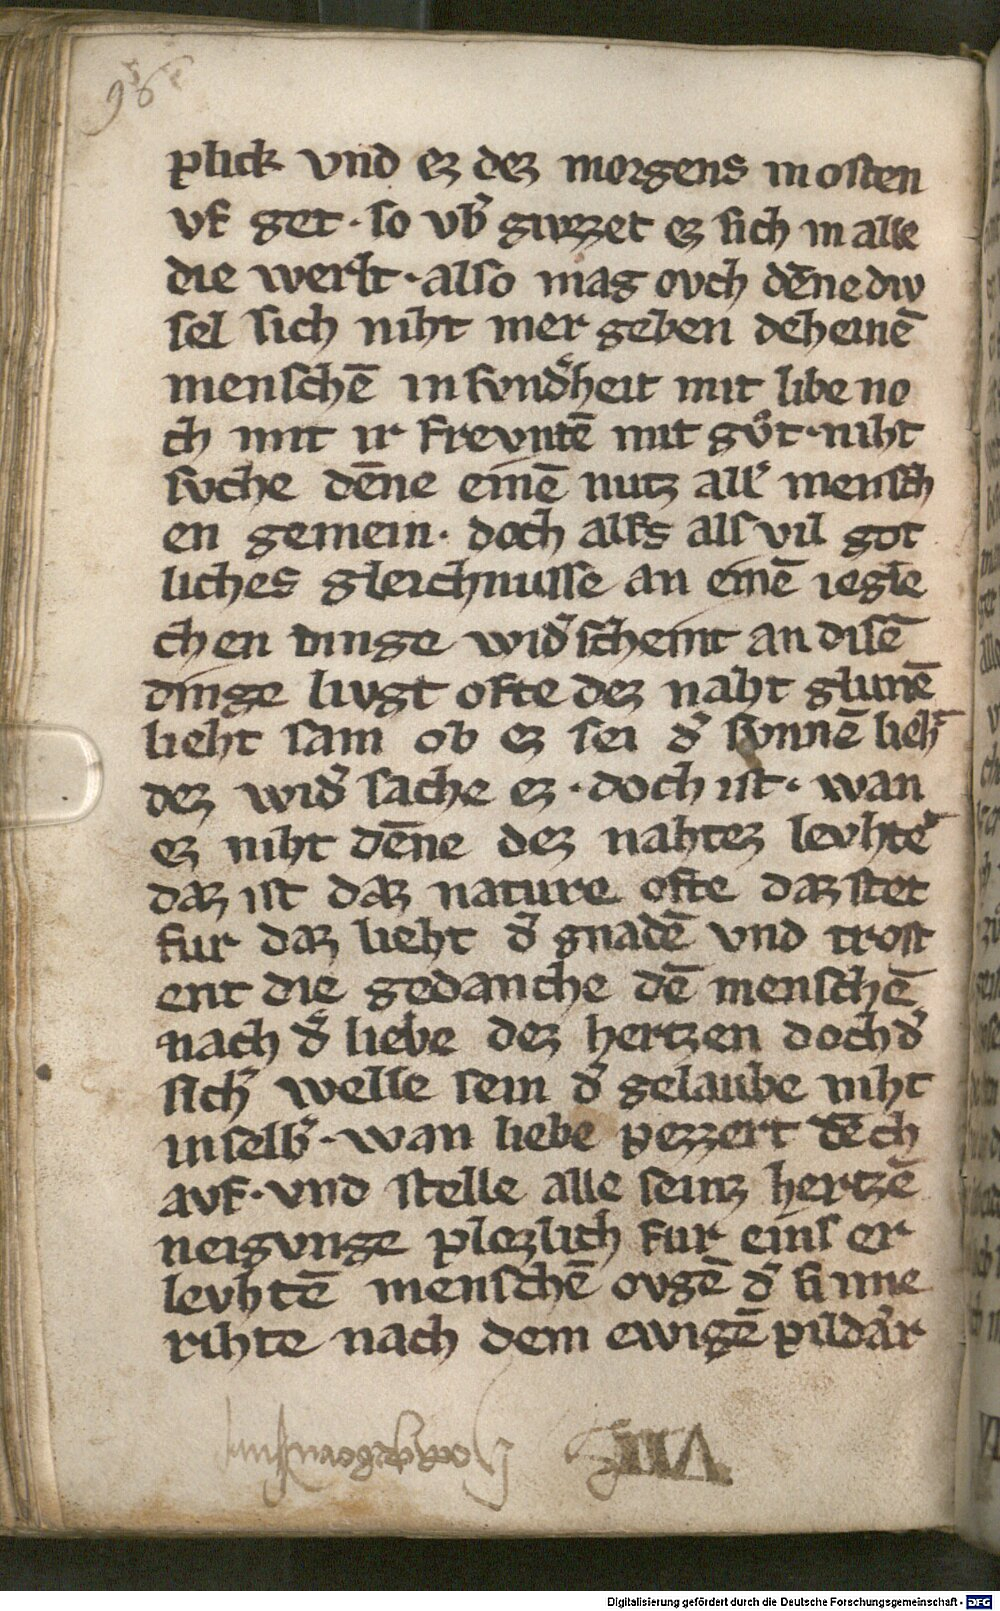 96
plick vnd ez dez morgens in osten
vf get · so vb̉ guzzet ez sich in alle
die werlt · also mag ovch dēne div
sel sich niht mer geben deheinē
menschē in svnd̉heit mit libe no
ch mit ir frevntē mit gv̊t · niht
svche dēne einē nutz all̉ mensch
en gemein · doch alles als vil got
liches gleichnusse an einē iegle
chen dinge wid̉scheint an disē
dinge livgt ofte dez naht glunē
lieht sam ob ez sei d̉ svnnē lieht
dez wid̉ sache ez · doch ist · wan
ez niht dēne dez nahtez levhtet
daz ist daz nature ofte daz stet
fur daz lieht d̉ gnadē vnd trost
ent die gedanche dē menschē
nach d̉ liebe dez hertzen doch d̉
sich̉ welle sein d̉ gelaube niht
in selb̉ · wan liebe pezzert dēch
avf · vnd stelle alle seinz hertzē
neigvnge plozlich fur eins er
levhtē menschē ovgē d̉ sinne
rihte nach dem ewigē pildær
VIII
Digitalisierung gefördert durch die Deutsche Forschungsgemeinschaft - DFG